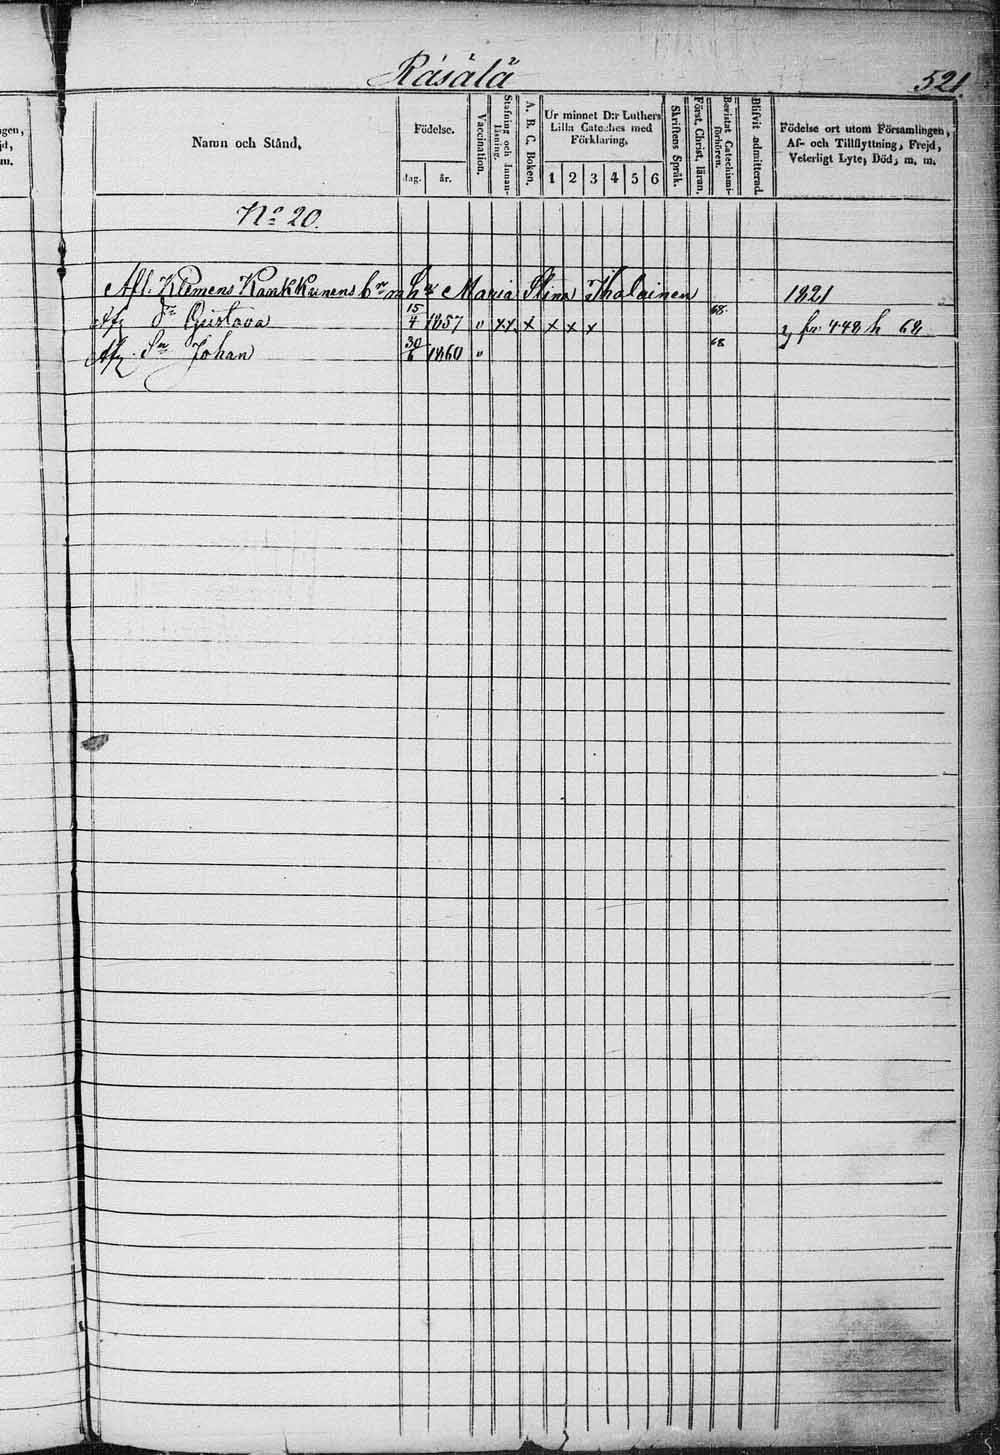 Räsälä
521.
gen,
jd,
m.
Namn och Stånd,
Födelse.
dag. år.
Vaccination.
Stafning och Innan-läsning.
A. B. C. Boken.
Ur minnet D:r Luthers Lilla Cateches med Förklaring,
1 2 3 4 5 6
Skriftens Språk.
Först. Christ. läran.
Bevistat Catechismi-förhören.
Blifvit admitterad.
Födelse ort utom Församlingen, Af- och Tillflyttning, Frejd, Veterligt Lyte, Död, m. m.
No 20.
Afl. Klemens Kankkunens Maria Stina Ihalainen 1821
Dr Gustava 15/4 1857 " xx x x x x 68. fr. 448 h 68
Sn Johan 30/6 1860 " 68